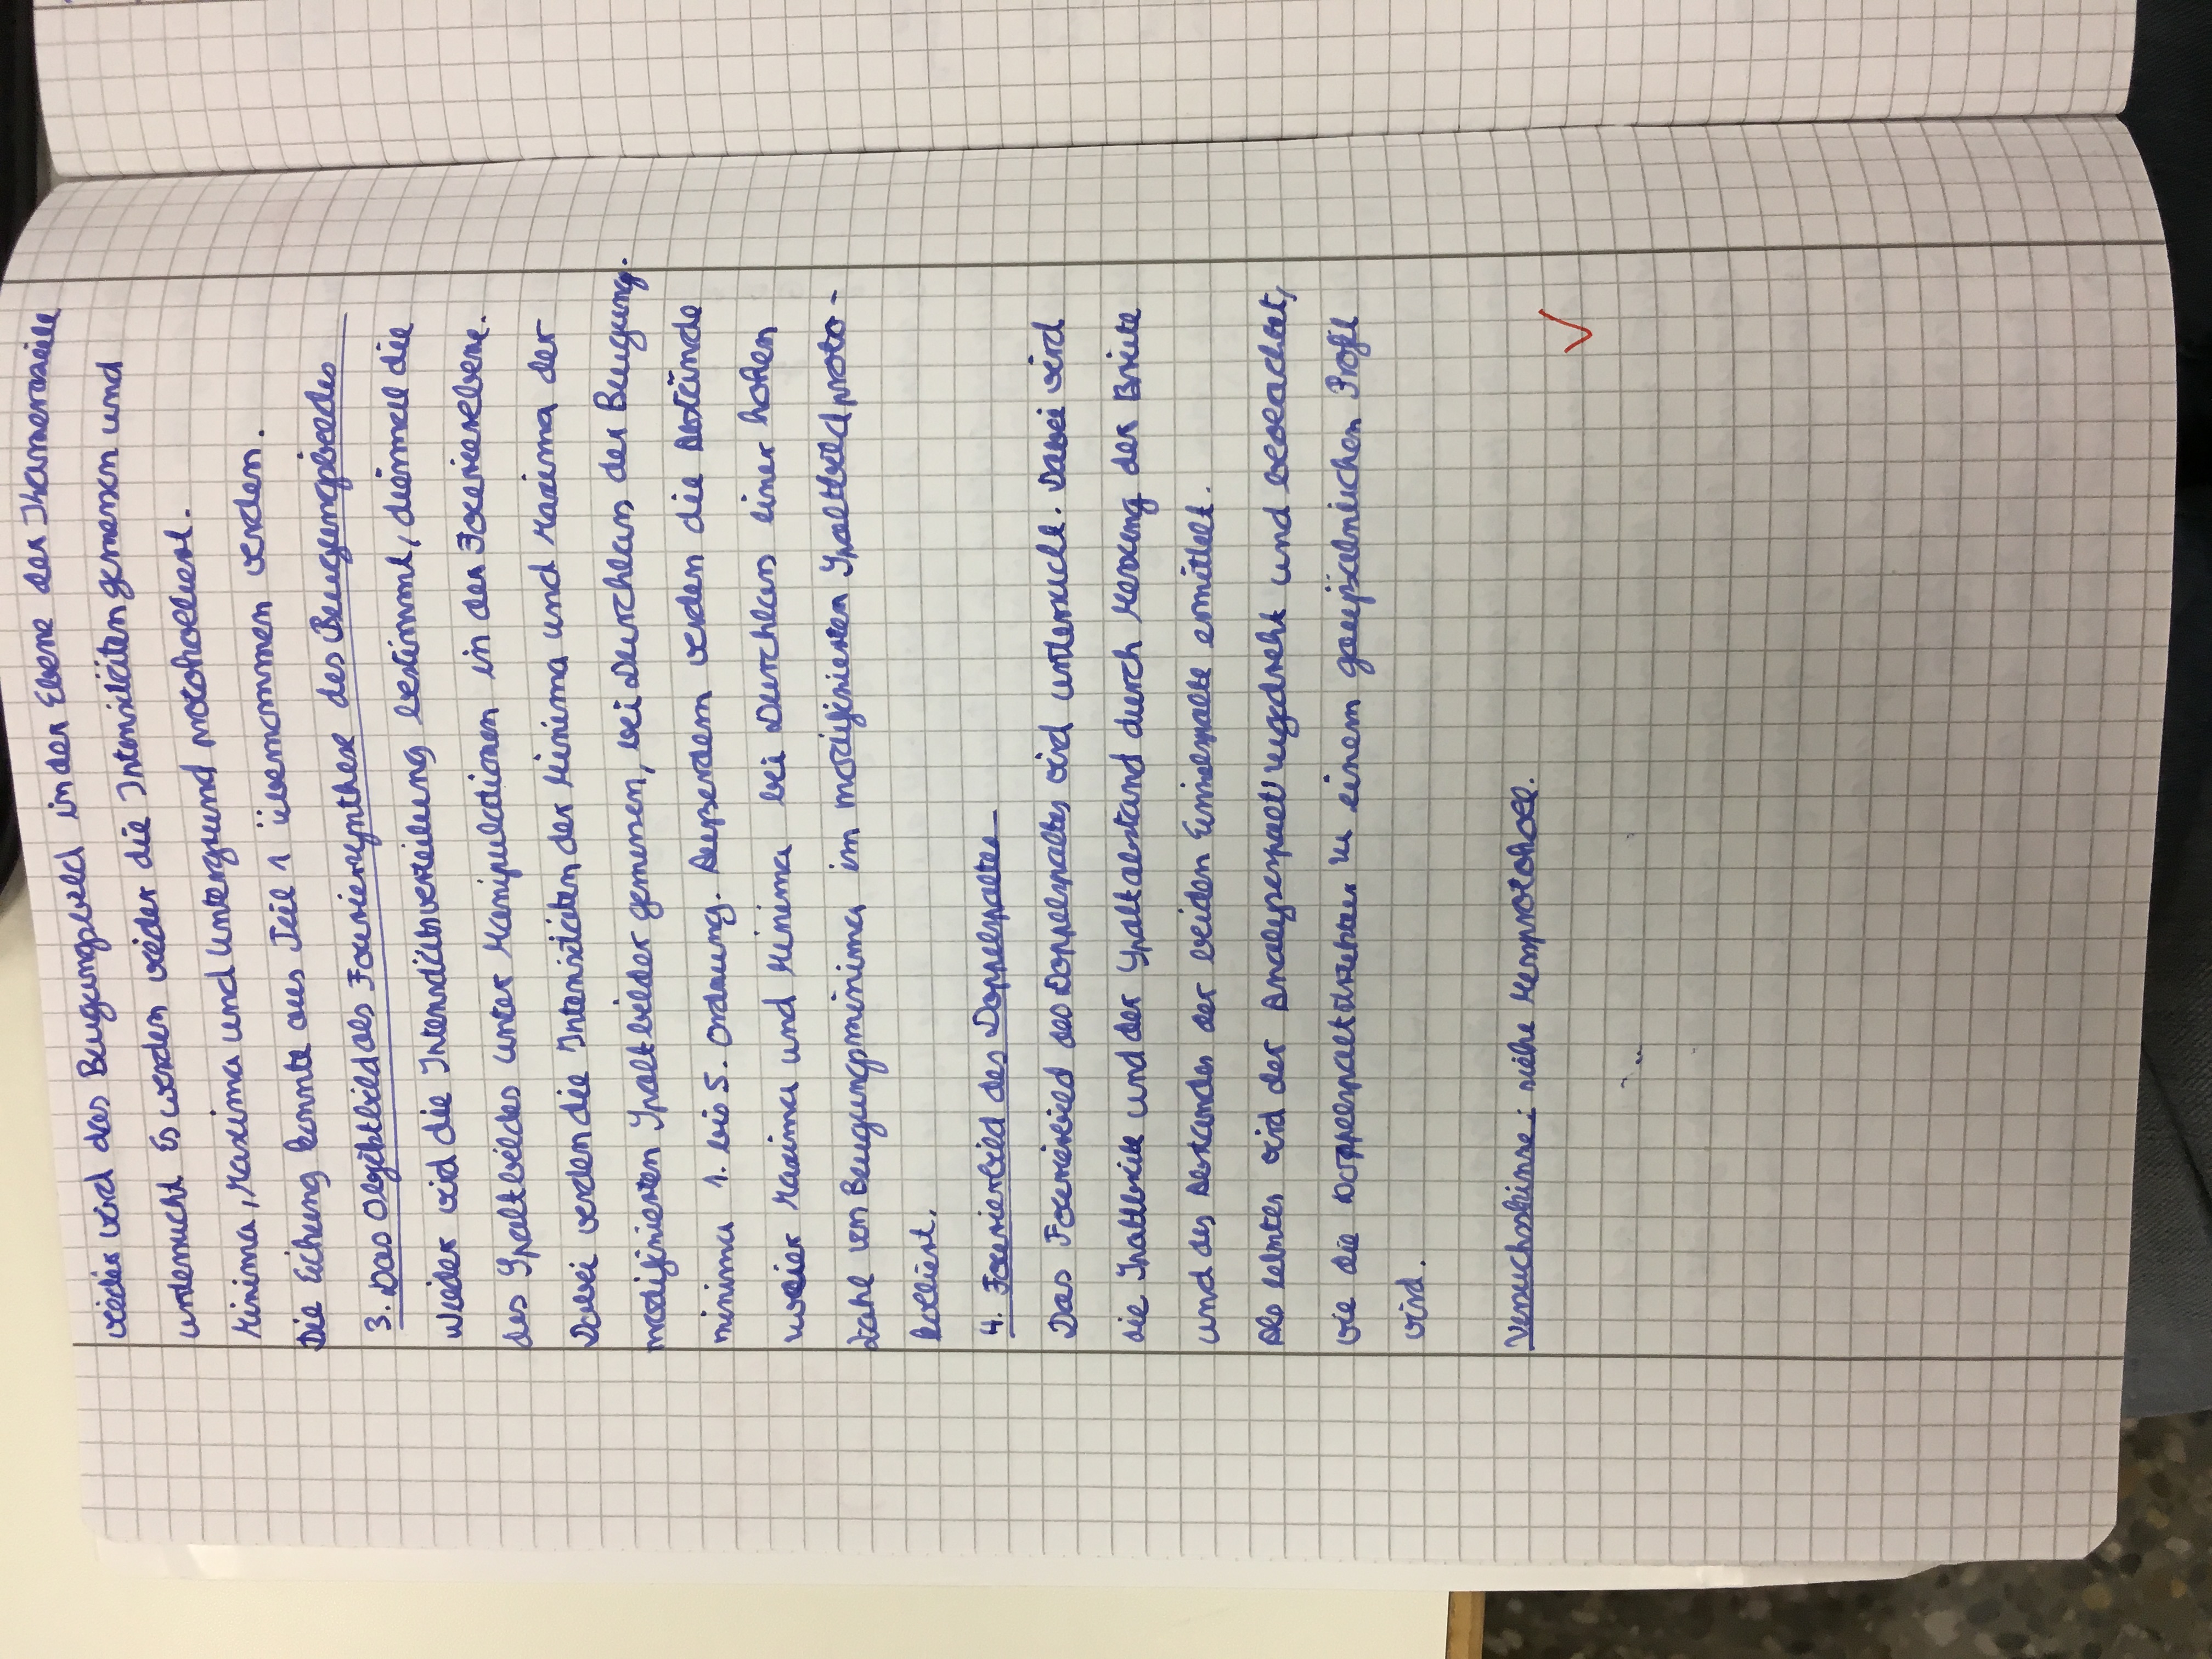 wieder wird das Beugungsbild in der Ebene der Kamerazeile
untersucht. Es werden wieder die Intensitäten gemessen und
Minima, Maxima und Untergrund protokolliert.
Die Eichung konnte aus Teil 1 übernommen werden.
3. Das Objektbild als Fouriersynthese des Beugungsbildes
Wieder wird die Intensitätsverteilung bestimmt, diesmal die
des Spaltbildes unter Manipulationen in der Fourierebene.
Dabei werden die Intensitäten der Minima und Maxima der
modifizierten Spaltbilder gemessen, bei Durchlass der Beugungs-
minima 1. bis 5. Ordnung. Außerdem werden die Abstände
zweier Maxima und Minima bei Durchlass einer hohen
Zahl von Beugungsminima im modifizierten Spaltbild proto-
kolliert.
4. Fourierbild des Doppelspaltes
Das Fourierbild des Doppelspaltes wird untersucht. Dabei wird
die Spaltbreite und der Spaltabstand durch Messung der Breite
und des Abstandes der beiden Einzelspalte ermittelt.
Als letztes wird der Analysespalt zugedreht und beobachtet,
wie die Doppelspaltstruktur zu einem gaußähnlichen Profil
wird.
Versuchsskizze: siehe Messprotokoll.